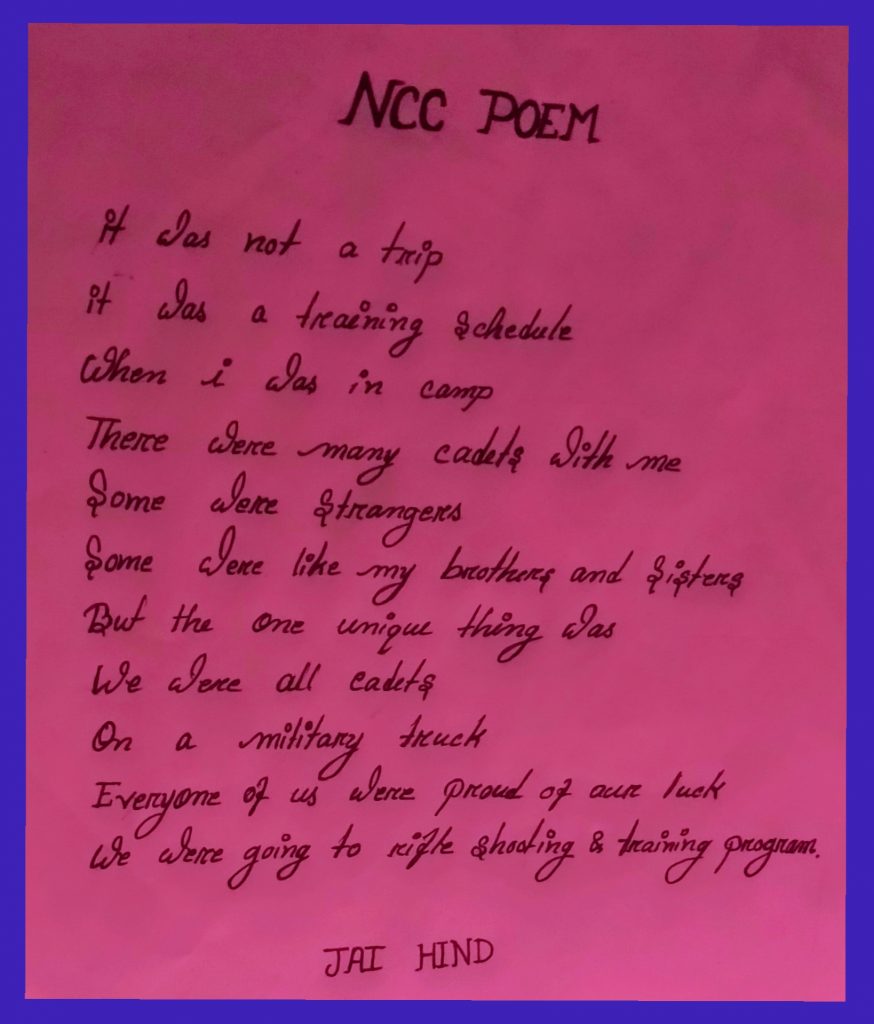 NCC POEM
it was not a trip
it was a training schedule
When i was in camp
There were many cadets with me
Some were strangers
Some were like my brothers and sisters
But the one unique thing was
We were all cadets
On a military truck
Everyone of us were proud of our luck
We were going to rifle shooting & training program.
JAI HIND